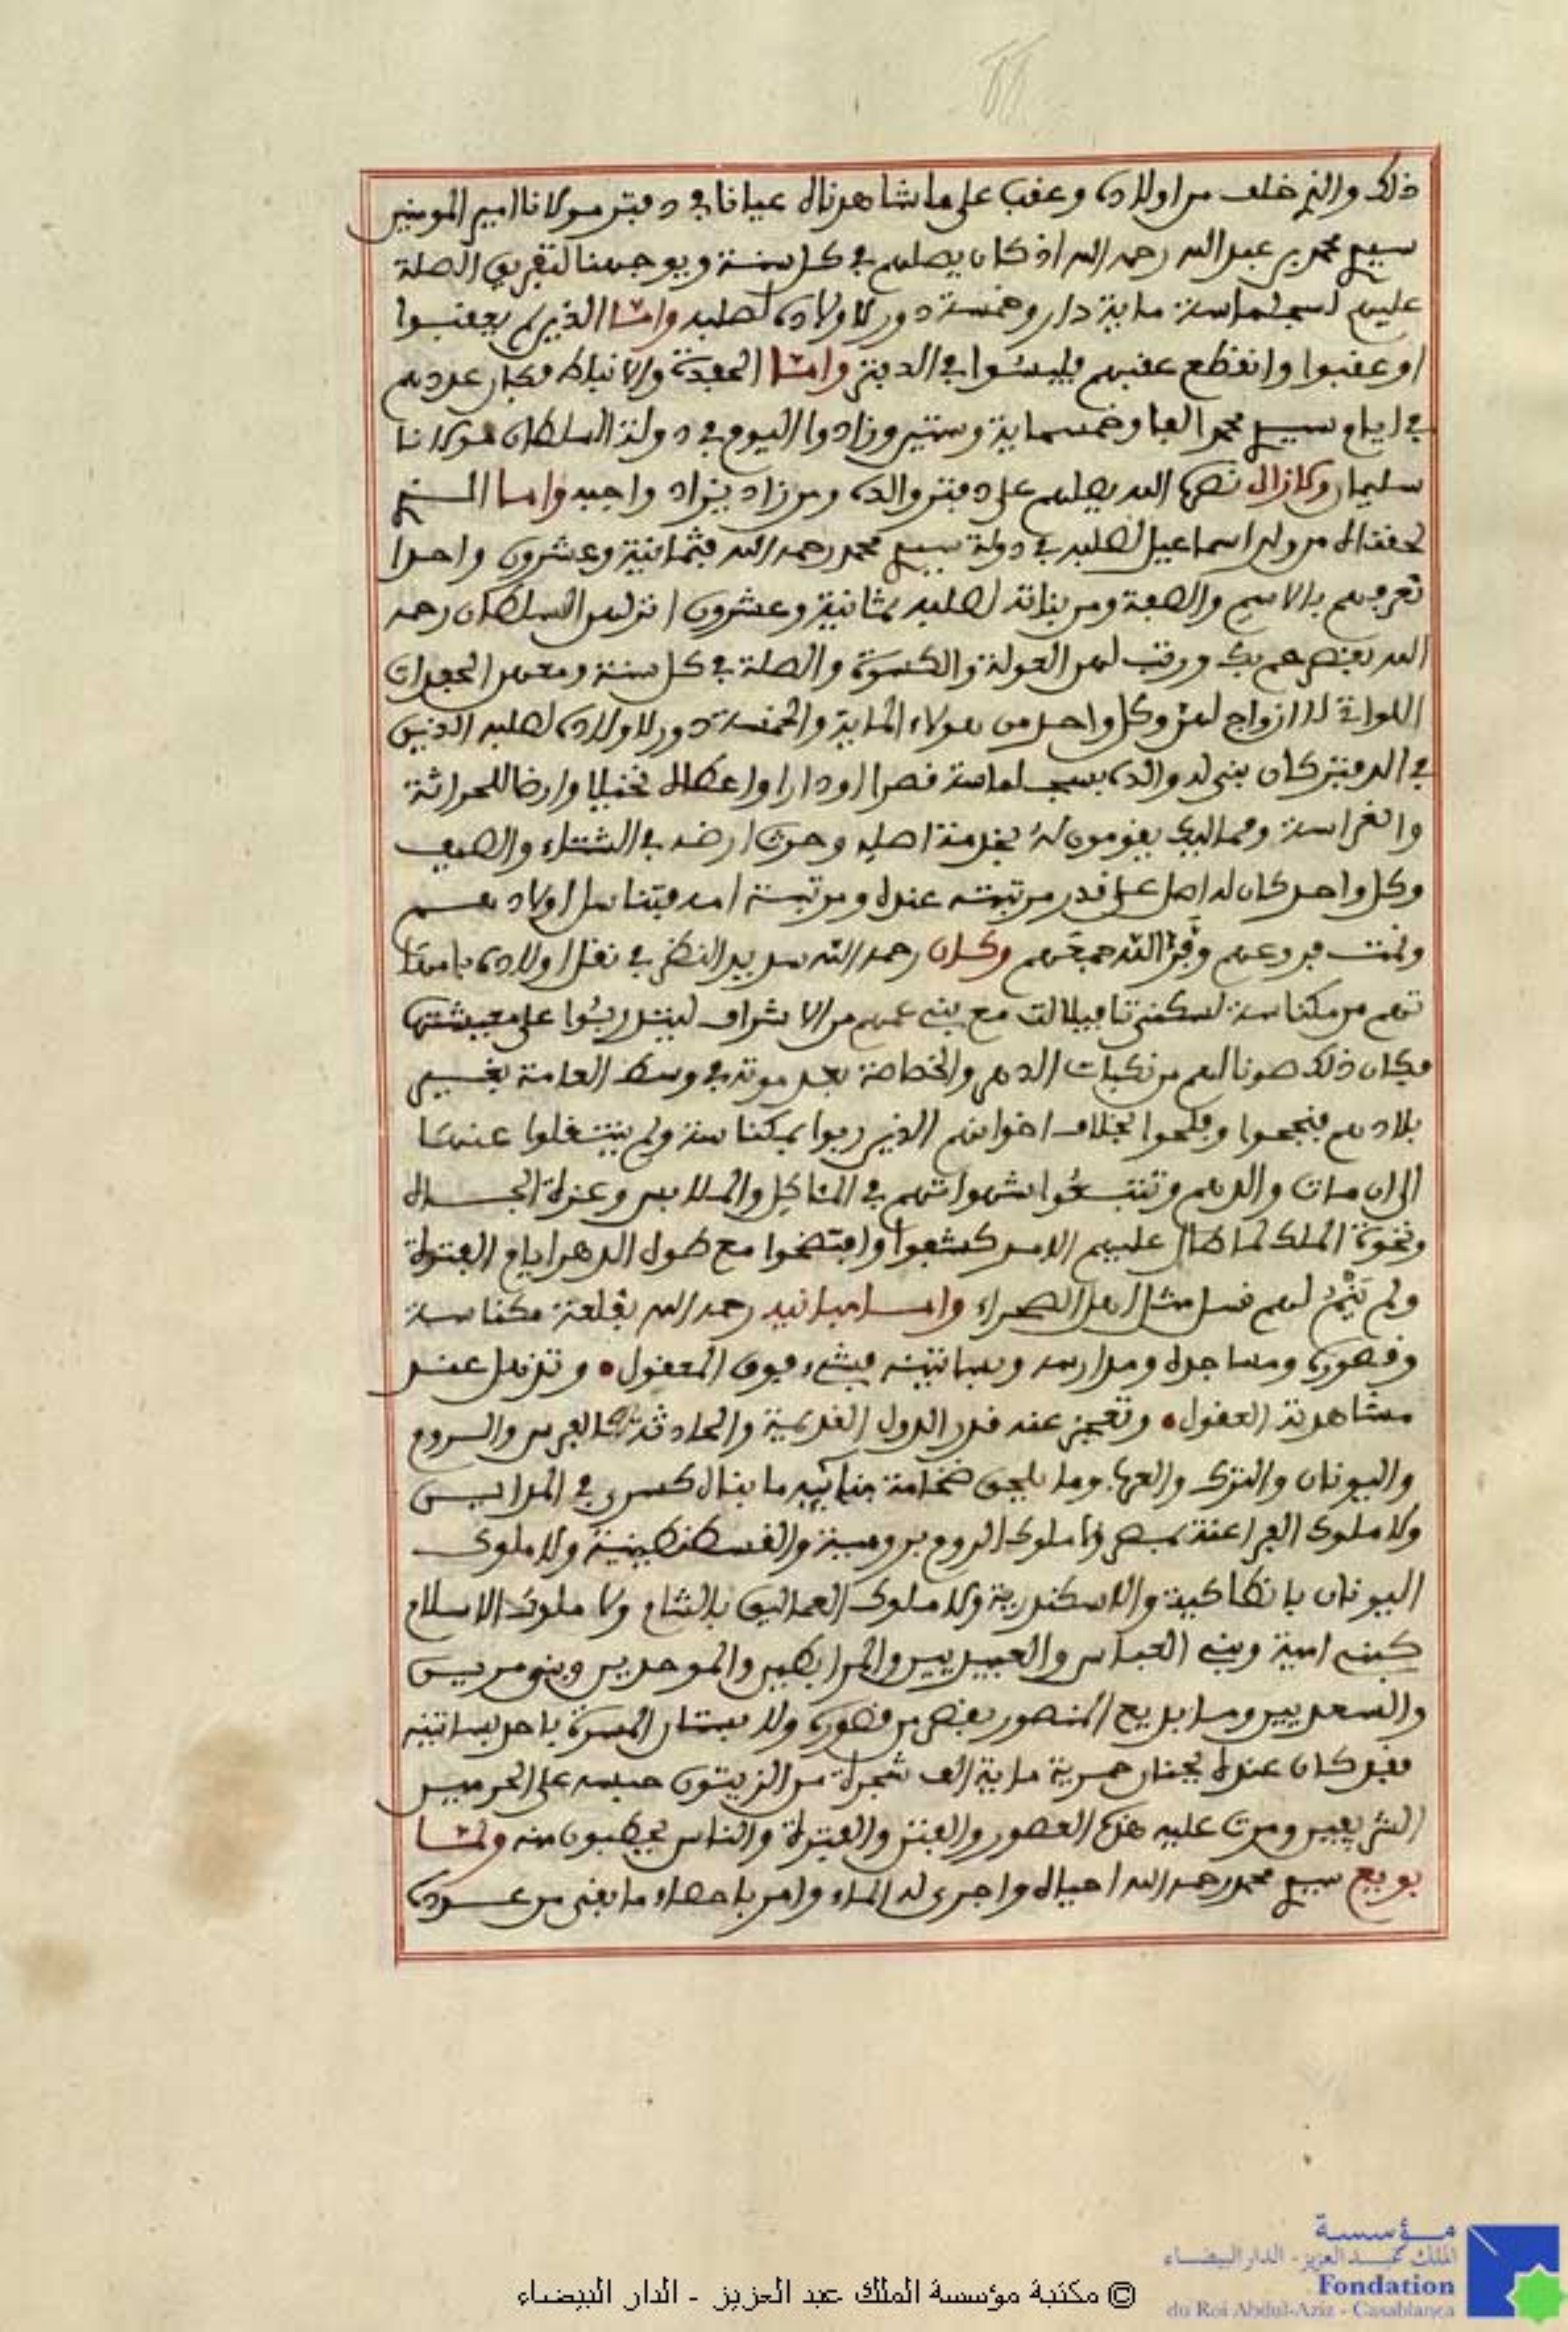 ذلك والذي خلف من اولاده وعقب على ما شاهدناه عيانا في دفتر مولانا امير المومنين
سيدي محمد بن عبد الله رحمه الله اذ كان يصلهم في كل سنة ويوجهنا لتفريق الصلة
عليهم لسجلماسة ماية دار وخمسة دور لاولاده لصلبه واما الذين لم يعقبوا
او عقبوا وانقطع عقبهم فليسوا في الدفتر واما الحفدة والاسباط فكان عددهم
في ايام سيدي محمد الفا وخمسماية وستين وزادوا اليوم في دولة السلطان مولانا
سليمان ولازال نصره الله يصلهم على دفتر والده ومن زاد يزاد واجبه واما الذي
لحقناه من ولد اسماعيل لصلبه في دولة سيدي محمد رحمه الله فثمانية وعشرون واحدا
نعرفهم بالاسم والصفة ومن بناته لصلبه ثمانية وعشرون انزلهن السلطان رحمه
الله بقصر حم بك ورتب لهن العولة والكسوة والصلة في كل سنة ومعهن الحفدات
اللواتي لا ازواج لهن وكل واحد من هولاء الماية والخمسة دور لاولاده لصلبه الذين
في الدفتر كان بنى له والده بسجلماسة قصرا او دارا واعطاه نخيلا وارضا للحراثة
والغراسة ومماليك يقومون له بخدمة اصله وحرث ارضه في الشتاء والصيف
وكل واحد كان له اصل على قدر مرتبته عنده ومرتبة امه فتناسل اولادهم
ونمت فروعهم وفر الله جمعهم وكان رحمه الله سديد النظر في نقل اولاده بامها
تهم من مكناسة لسكنى تافيلالت مع بني عمهم من الاشراف ليتدربوا على معيشتها
فكان ذلك صونا لهم من نكبات الدهر والخصاصة بعد موته في وسط العامة بغير
بلادهم فنجحوا وفلحوا بخلاف اخوانهم الذين ربوا بمكناسة ولم ينتقلوا عنها
الى ان مات والدهم وتتبعوا شهواتهم في الماكل والملابس وعزة الجاه
ونخوة الملك لما طال عليهم الامر كشفوا وافتضحوا مع طول الدهر ايام الفترة
ولم ينم لهم نسل مثل اهل الصحراء واما مبانيه رحمه الله بقلعة مكناسة
وقصوره ومساجده ومدارسه وبساتينه فشيء فوق المعقول وتذهل عند
مشاهدته العقول وتعجز عنه قدر الدول القديمة والحادثة كالفرس والروم
واليونان والترك والعرب وما يلحق ضخامة بنائه ما بناه كسرى في المداين
ولا ملوك الفراعنة بمصر ولا ملوك الروم برومية والقسطنطينية ولا ملوك
اليونان بانطاكية والاسكندرية ولا ملوك العماليق بالشام ولا ملوك الاسلام
كبني امية وبني العباس والعبيديين والمرابطين والموحدين وبني مرين
والسعديين وما بديع المنصور بقصر من قصوره ولا بستان المسرة باحد بساتينه
فقد كان عنده بجنان حمرية ماية الف شجرة من الزيتون حبسه على الحرمين
الشريفين ومرت عليه هذه العصور والفتن والفترة والناس يحطبون منه ولما
بويع سيدي محمد رحمه الله احياه واجرى له الماء وامر باحصاء ما بقي من عوده
مؤسسة
الملك عبد العزيز - الدار البيضاء
Fondation
du Roi Abdul-Aziz - Casablanca
© مكتبة مؤسسة الملك عبد العزيز - الدار البيضاء